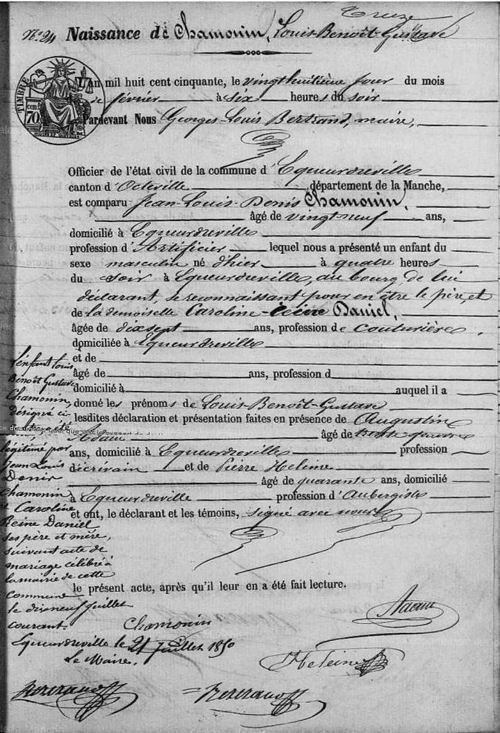 Treize
N.º 24 Naissance de Chamonin, Louis-Benoît-Gustave
TIMBRE
70
L'An mil huit cent cinquante, le vingthuitième jour du mois
de février à six heures du soir
Pardevant Nous Georges-Louis Bertrand, maire,
Officier de l'état civil de la commune d'Equeurdreville
canton d'Octeville département de la Manche,
est comparu Jean-Louis-Denis Chamonin,
âgé de vingt-neuf ans,
domicilié à Equeurdreville
profession d'Artificier lequel nous a présenté un enfant du
sexe masculin né d'hier à quatre heures
du soir à Equeurdreville, au bourg, de lui
déclarant, se reconnaissant pour en être le père et
de la demoiselle Caroline-Reine Daniel,
âgée de dix sept ans, profession de couturière
domiciliée à Equeurdreville
et de
âgé de ans, profession d
domicilié à auquel il a
donné les prénoms de Louis-Benoît-Gustave
lesdites déclaration et présentation faites en présence de Augustin
Adam âgé de
ans, domicilié à Equeurdreville profession
d'écrivain et de Pierre Heleine
âgé de quarante ans, domicilié
à Equeurdreville profession d'Aubergiste
et ont, le déclarant et les témoins, signé avec nous
le présent acte, après qu'il leur en a été fait lecture.
L'enfant Louis
Benoît Gustave
Chamonin,
désigné ci
légitimé par
Jean Louis
Denis
Chamonin
et Caroline
Reine Daniel
ses père et mère,
suivant acte de
mariage célébré à
la mairie de cette
commune
le dix neuf juillet
courant.
Equeurdreville le 21 juillet 1850
Le Maire,
Chamonin
Adam
Heleine
Bertrand
Bertrand